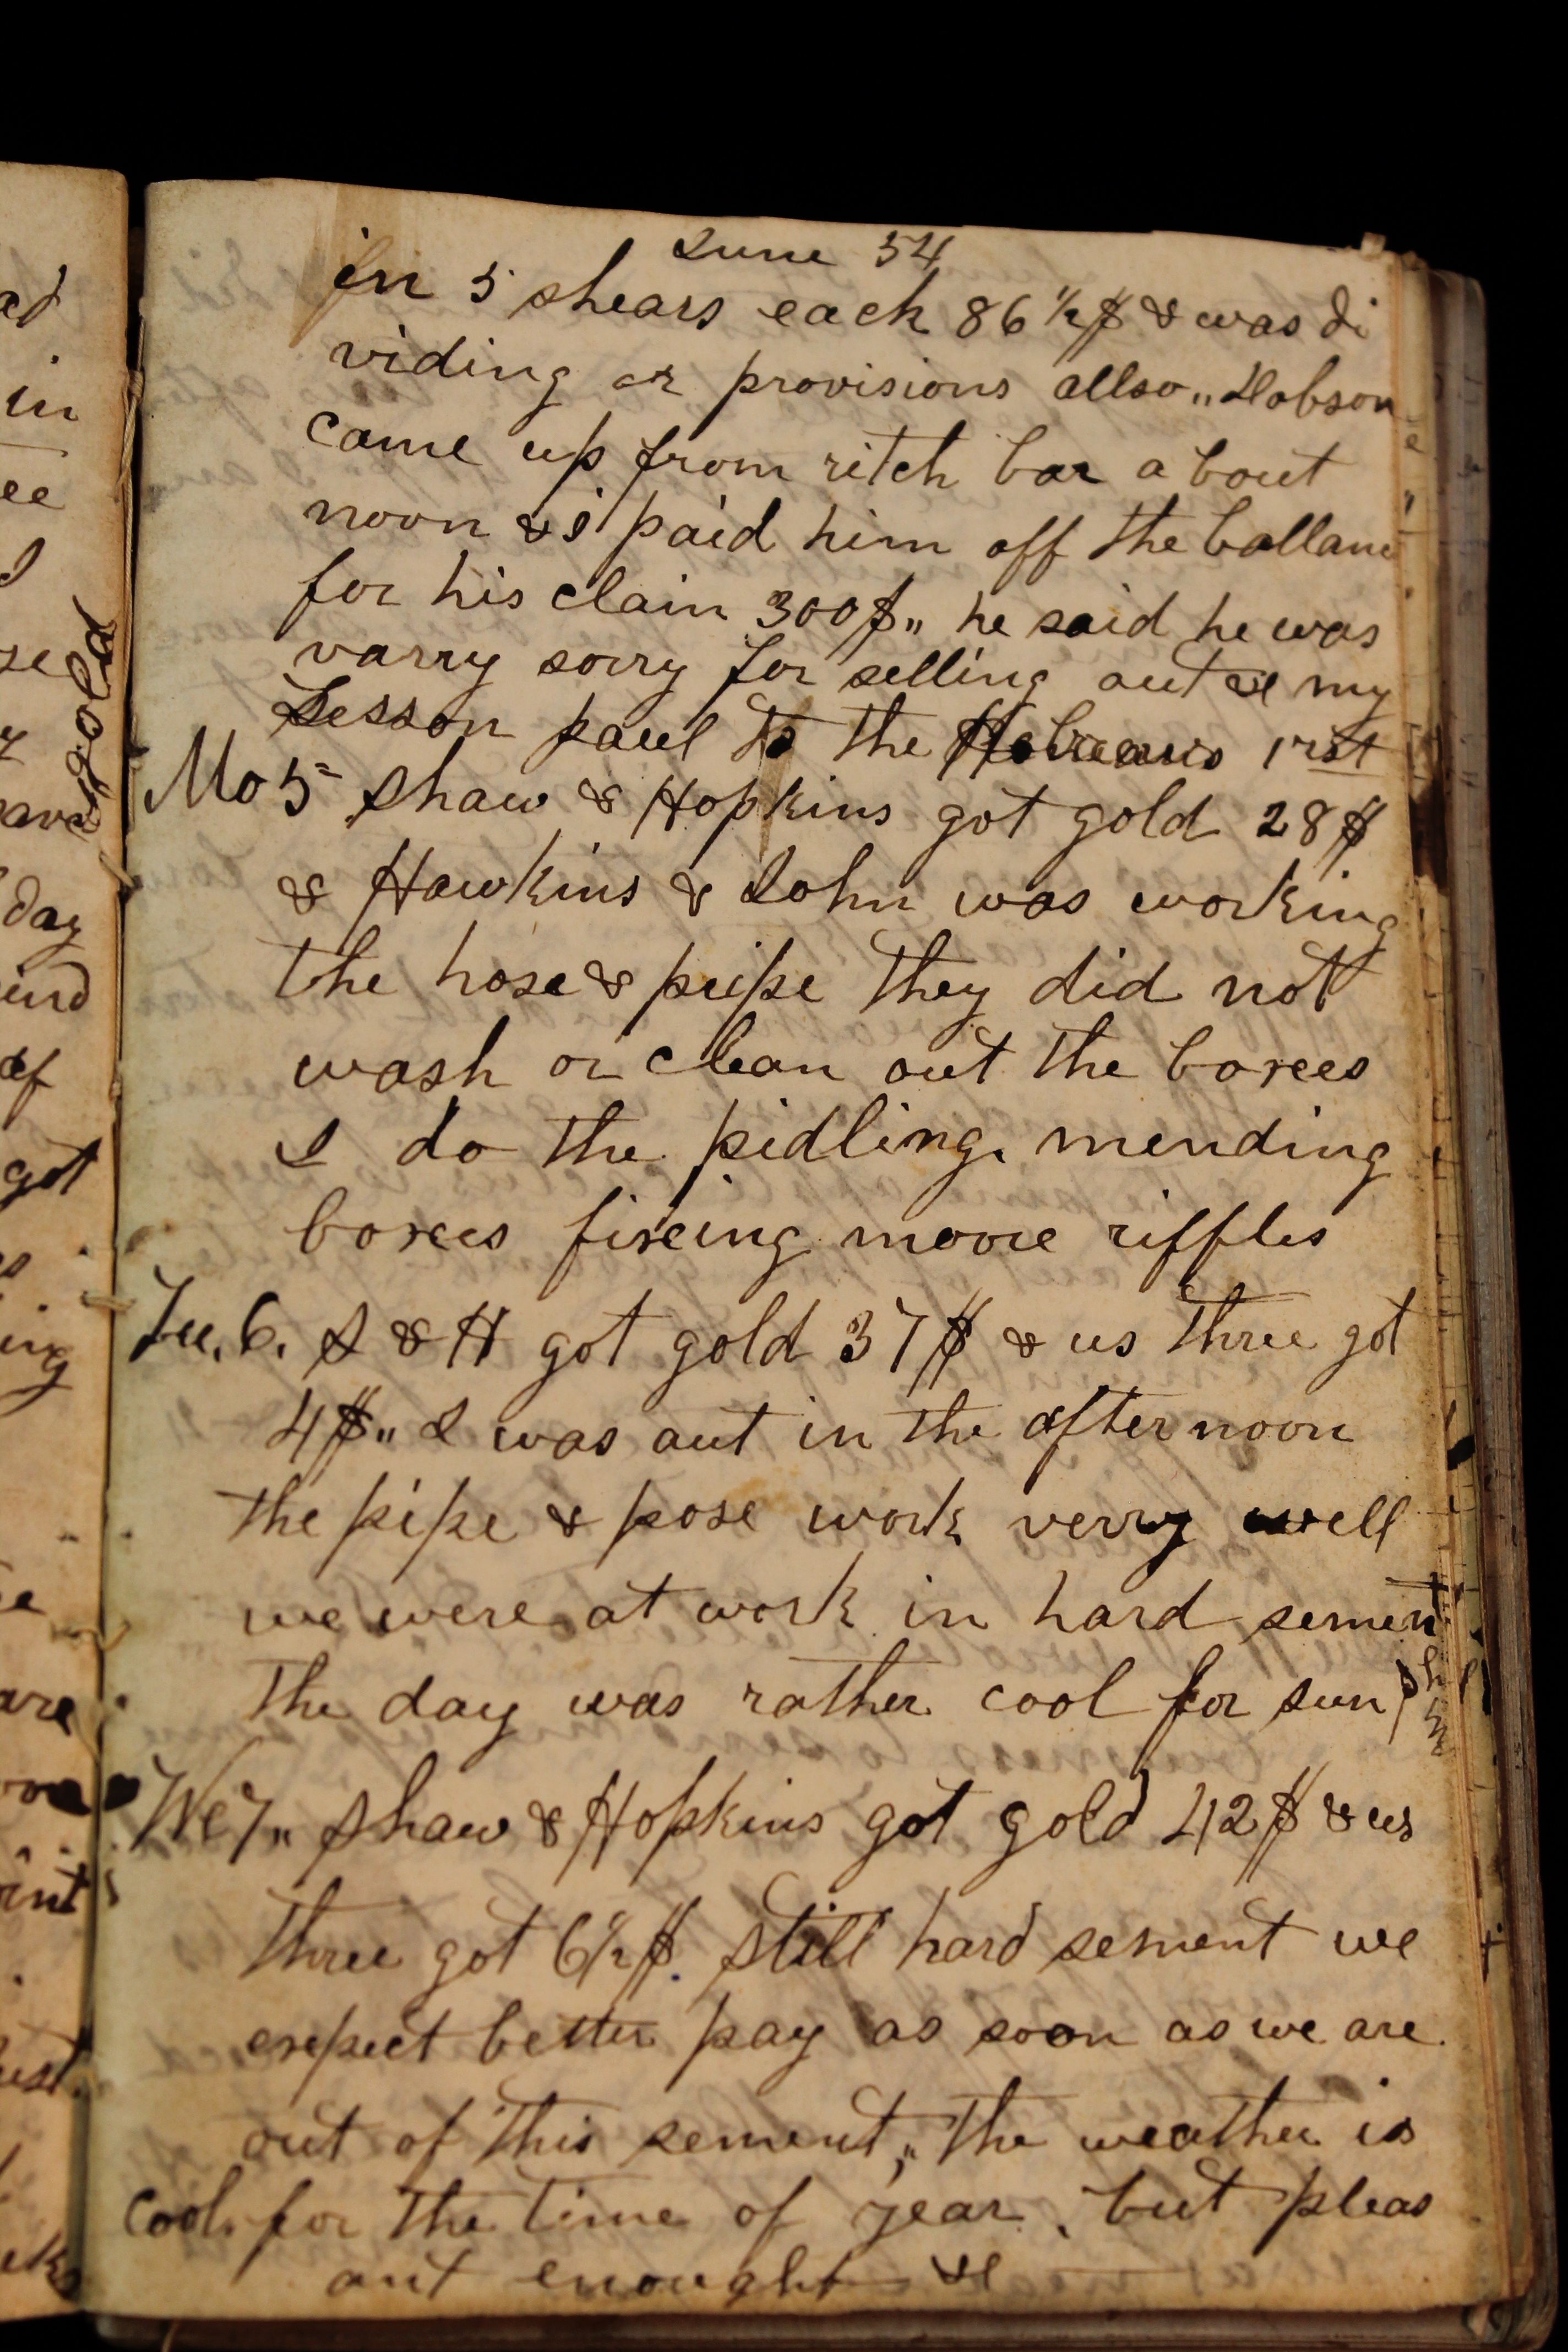 ad
in
ee
I
se
gold
day
of
got
ing
are
int
ust
June 54
in 5 shears each 86 1/2 $ & was di
viding or provisions allso „ Hobson
came up from ritch bar a bout
noon & i paid him off the ballanc
for his claim 300 $ „ he said he was
varry sorry for selling out &c my
Lesson paul to the Hebreaws 1rst
Mo 5 Shaw & Hopkins got gold 28 $
& Hawkins & John was working
the hose & peipe they did not
wash or clean out the boxees
I do the pidling. mending
boxees fixeing moove riffles
Tu. 6. S & H got gold 37 $ & us three got
4 $ „ I was out in the after noon
the pipe & hose work verry well
we were at work in hard sement
the day was rather cool for sun sh
We 7 „ Shaw & Hopkins got gold 42 $ & us
three got 6 1/2 $. still hard sement we
expect better pay as soon as we are
out of this sement, „ the weather is
cool. for the time of year. but pleas
ant enought &c